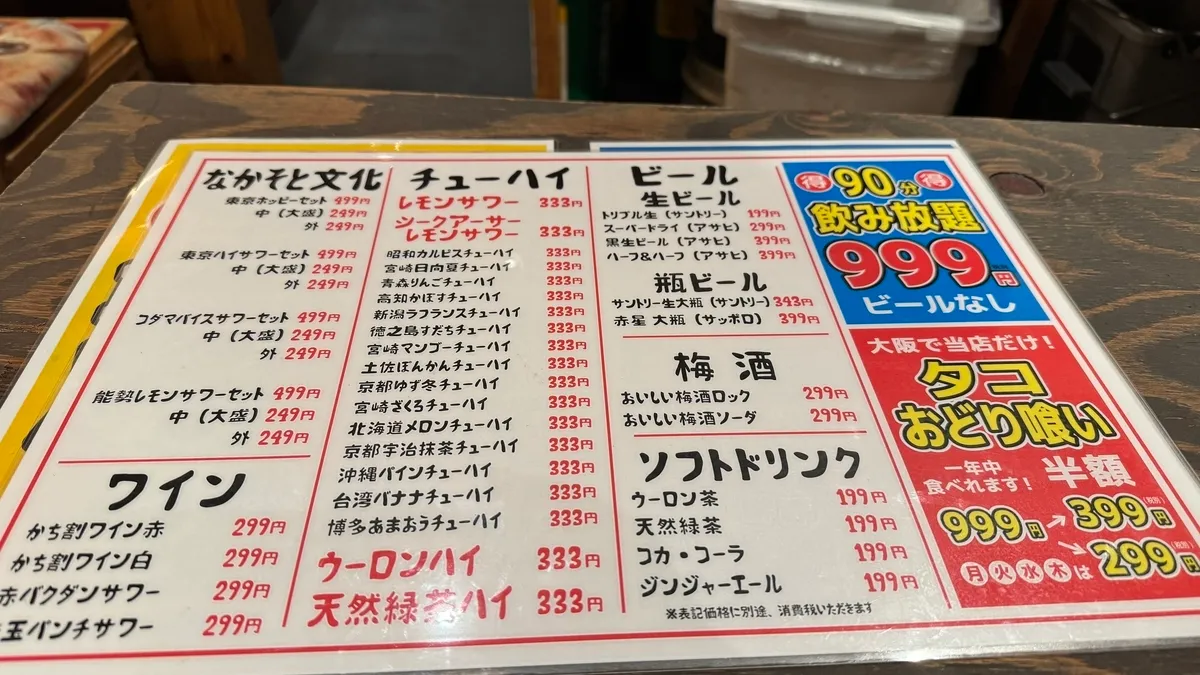 なかそと文化
東京ホッピーセット 499円
中（大盛）249円
外 249円
東京ハイサワーセット 499円
中（大盛）249円
外 249円
コダマバイスサワーセット 499円
中（大盛）249円
外 249円
能勢レモンサワーセット 499円
中（大盛）249円
外 249円
ワイン
かち割ワイン赤 299円
かち割ワイン白 299円
赤バクダンサワー 299円
玉パンチサワー 299円
チューハイ
レモンサワー 333円
シークアーサー
レモンサワー 333円
昭和カルピスチューハイ 333円
宮崎日向夏チューハイ 333円
青森りんごチューハイ 333円
高知かぼすチューハイ 333円
新潟ラフランスチューハイ 333円
徳之島すだちチューハイ 333円
宮崎マンゴーチューハイ 333円
土佐ぽんかんチューハイ 333円
京都ゆず冬チューハイ 333円
宮崎ざくろチューハイ 333円
北海道メロンチューハイ 333円
京都宇治抹茶チューハイ 333円
沖縄パインチューハイ 333円
台湾バナナチューハイ 333円
博多あまおうチューハイ 333円
ウーロンハイ 333円
天然緑茶ハイ 333円
ビール
生ビール
トリプル生（サントリー） 199円
スーパードライ（アサヒ） 299円
黒生ビール（アサヒ） 399円
ハーフ&ハーフ（アサヒ） 399円
瓶ビール
サントリー生大瓶（サントリー）343円
赤星 大瓶（サッポロ） 399円
梅酒
おいしい梅酒ロック 299円
おいしい梅酒ソーダ 299円
ソフトドリンク
ウーロン茶 199円
天然緑茶 199円
コカ・コーラ 199円
ジンジャーエール 199円
※表記価格に別途、消費税いただきます
得 90分 得
飲み放題
999円
ビールなし
大阪で当店だけ！
タコ
おどり喰い
一年中
食べれます！
半額
999円→399円(税別)
→299円(税別)
月火水木は